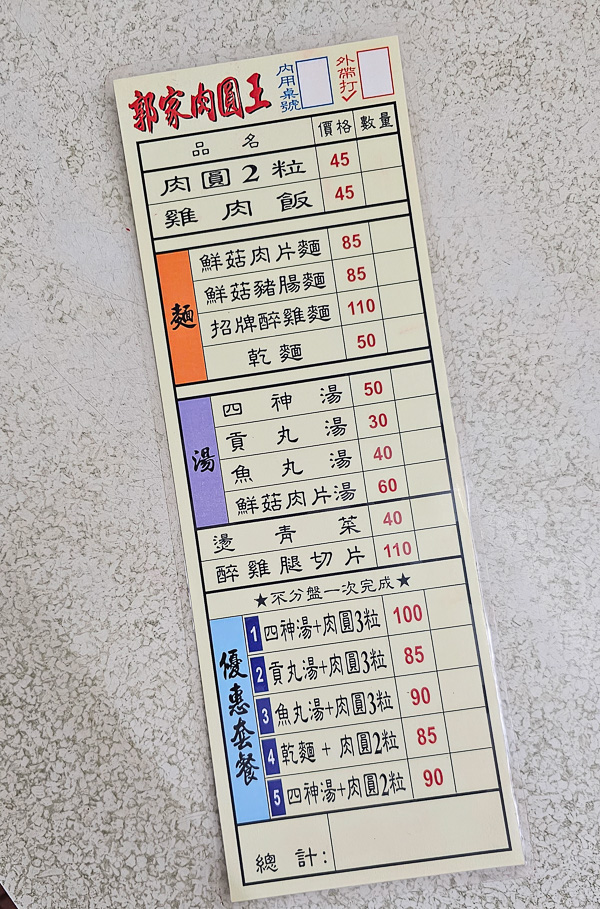 郭家肉圓王 內用桌號 外帶打✓
品名 價格 數量
肉圓2粒 45
雞肉飯 45
麵
鮮菇肉片麵 85
鮮菇豬腸麵 85
招牌醉雞麵 110
乾麵 50
湯
四神湯 50
貢丸湯 30
魚丸湯 40
鮮菇肉片湯 60
燙青菜 40
醉雞腿切片 110
★不分盤一次完成★
優惠套餐
1 四神湯+肉圓3粒 100
2 貢丸湯+肉圓3粒 85
3 魚丸湯+肉圓3粒 90
4 乾麵+肉圓2粒 85
5 四神湯+肉圓2粒 90
總計: